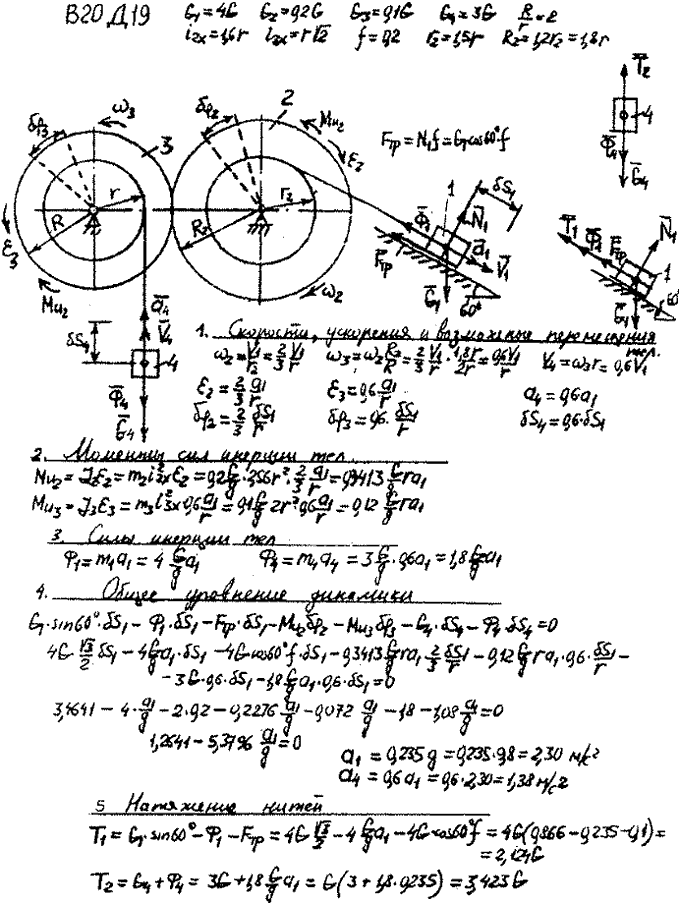 В20 Д19 G₁=4G G₂=0,2G G₃=0,1G G₄=3G R/r=2
i₂ₓ=1,6r i₃ₓ=r√2 f=0,2 r₂=1,5r R₂=1,2r₂=1,8r
T̄₂
4
Φ̄₄
Ḡ₄
δφ₃ ω₃ δφ₂ 2 M̄и₂
3 ε̄₂
Fтр=N₁f=G₁cos60°f
r r₂ R R₂
ε̄₃ M̄и₂ ω₂
1 δS₁ N̄₁ Φ̄₁ ā₁ V̄₁ F̄тр Ḡ₁ 60°
T̄₁ Φ̄₁ F̄тр N̄₁ 1 Ḡ₁ 60°
ā₄ V̄₄ δS₄ 4 Φ̄₄ Ḡ₄
1. Скорости, ускорения и возможные перемещения тел.
ω₂=V₁/r₂=2/3 V₁/r ω₃=ω₂R₂/R=2/3 V₁/r·1,8r/2r=0,6V₁/r V₄=ω₃r=0,6V₁
ε₂=2/3 a₁/r ε₃=0,6a₁/r a₄=0,6a₁
δφ₂=2/3 δS₁/r δφ₃=0,6·δS₁/r δS₄=0,6·δS₁
2. Моменты сил инерции тел.
Mи₂=J₂ε₂=m₂i²₂ₓε₂=0,2G/g·2,56r²·2/3 a₁/r=0,3413G/g ra₁
Mи₃=J₃ε₃=m₃i²₃ₓ0,6a₁/r=0,1G/g 2r²0,6a₁/r=0,12G/g ra₁
3. Силы инерции тел
Φ₁=m₁a₁=4G/g a₁ Φ₄=m₄a₄=3G/g·0,6a₁=1,8G/g a₁
4. Общее уравнение динамики
G₁·sin60°·δS₁-Φ₁·δS₁-Fтр·δS₁-Mи₂δφ₂-Mи₃δφ₃-G₄·δS₄-Φ₄·δS₄=0
4G·√3/2 δS₁-4G/g a₁·δS₁-4Gcos60°f·δS₁-0,3413G/g ra₁·2/3 δS₁/r-0,12G/g ra₁·0,6·δS₁/r-
-3G·0,6·δS₁-1,8G/g a₁·0,6·δS₁=0
3,4641-4·a₁/g-2·0,2-0,2276 a₁/g-0,072 a₁/g-1,8-1,08a₁/g=0
1,2641-5,3796 a₁/g=0
a₁=0,235g=0,235·9,8=2,30 м/с²
a₄=0,6a₁=0,6·2,30=1,38 м/с²
5 Натяжение нитей
T₁=G₁·sin60°-Φ₁-Fтр=4G√3/2-4G/g a₁-4Gcos60°f=4G(0,866-0,235-0,1)=
=2,124G
T₂=G₄+Φ₄=3G+1,8G/g a₁=G(3+1,8·0,235)=3,423G